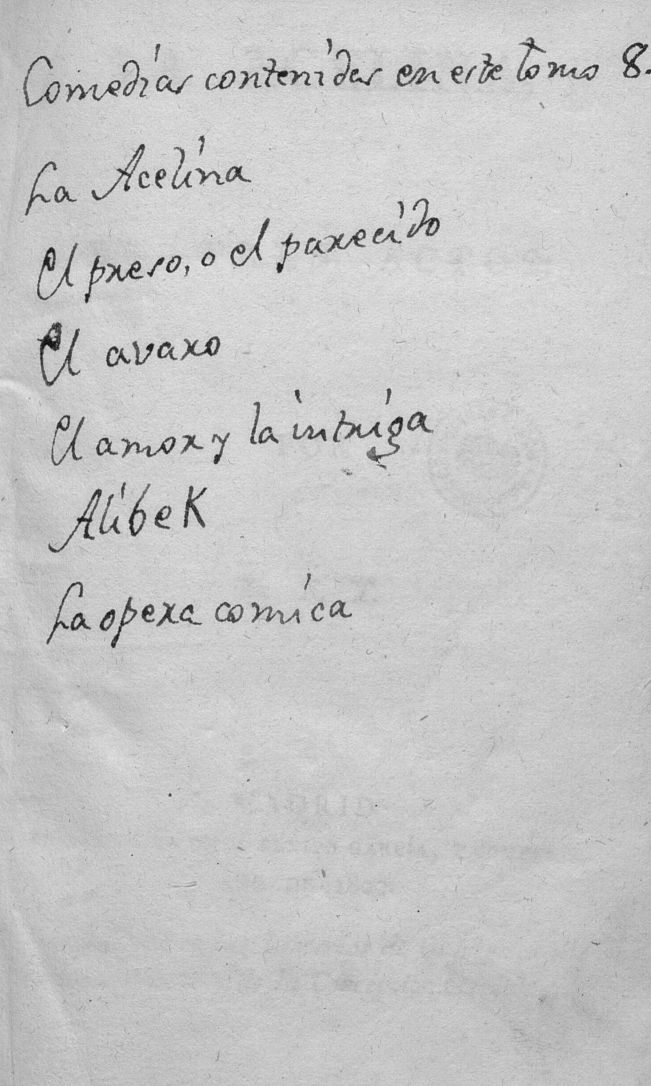 Comedias contenidas en este tomo 8.
La Acelina
El preso, o el parecido
El avaro
El amor y la intriga
Alibek
La opera comica